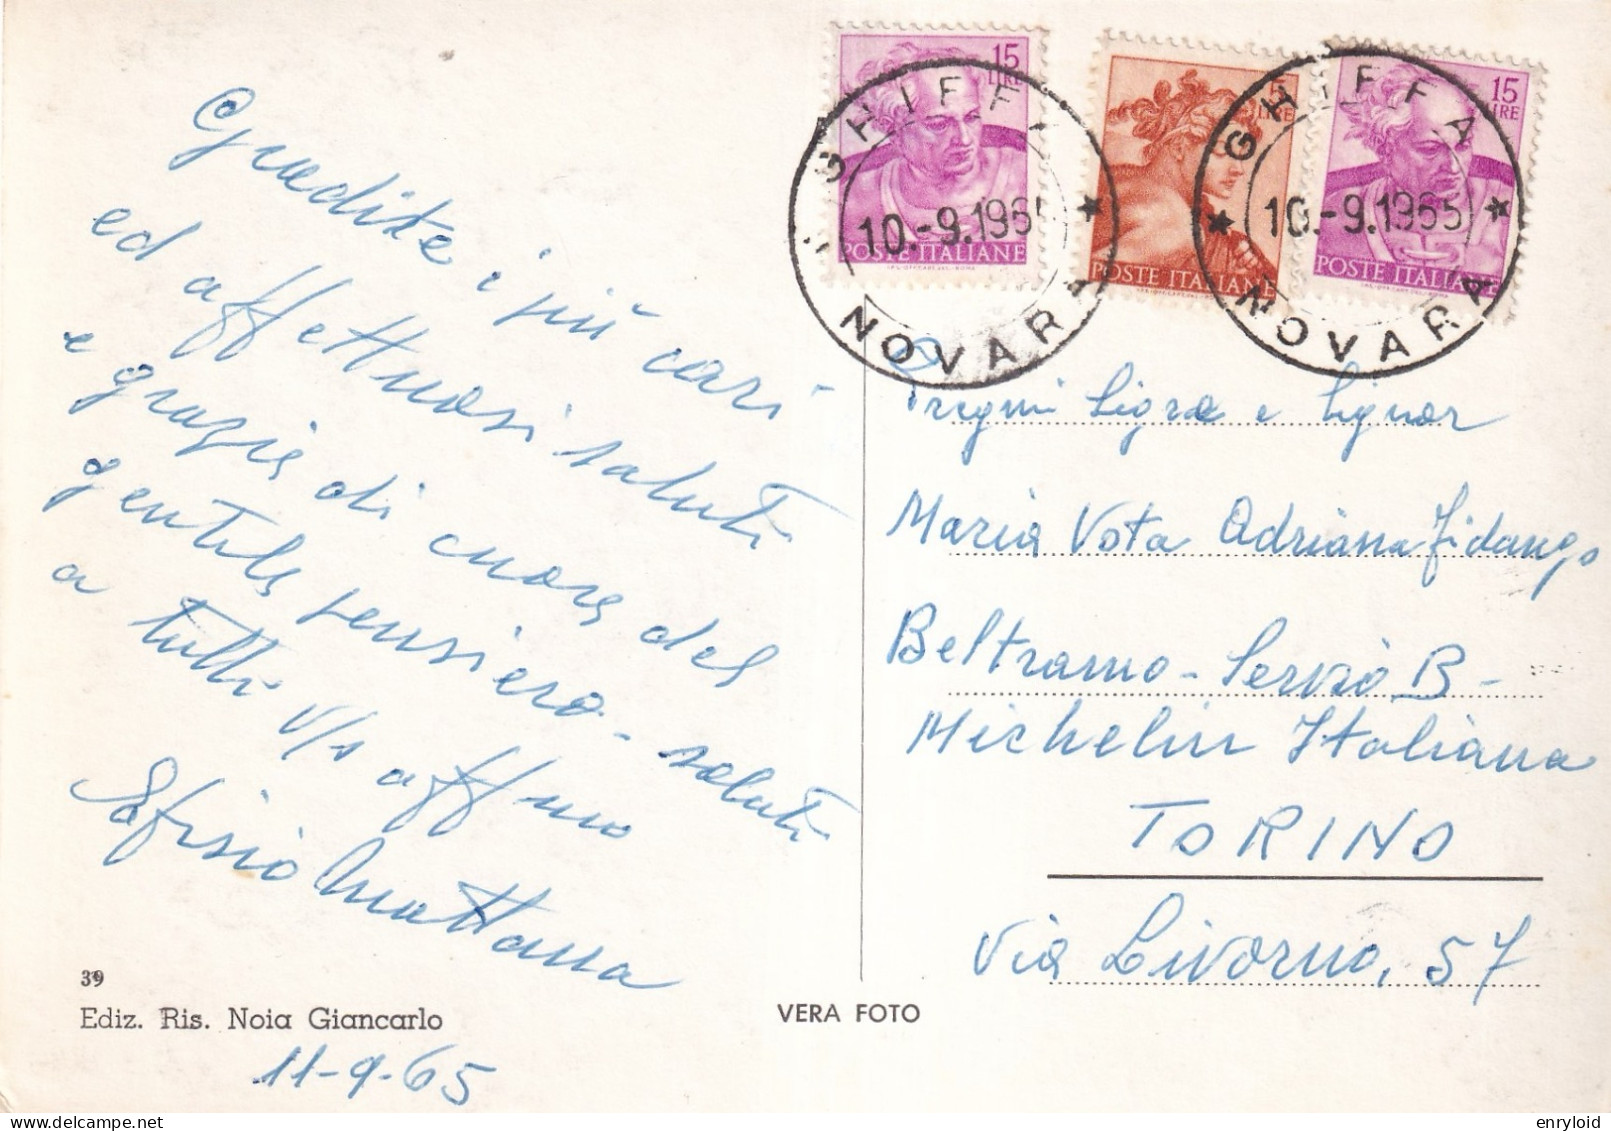 Gradite i più cari
ed affettuosi saluti
e grazie di cuore del
gentile pensiero - saluti
a tutti V/s aff.mo
Efisio Mattana
39
Ediz. Ris. Noia Giancarlo
11-9-65
VERA FOTO
15 LIRE
POSTE ITALIANE
GHIFFA
10.-9.1965
NOVARA
5 LIRE
POSTE ITALIANE
15 LIRE
POSTE ITALIANE
GHIFFA
10.-9.1965
NOVARA
Pregmi Sigra e Signor
Maria Vota Adriana Fidango
Beltramo - Servizio B -
Michelin Italiana
TORINO
Via Livorno, 57
enryloid
delcampe.net